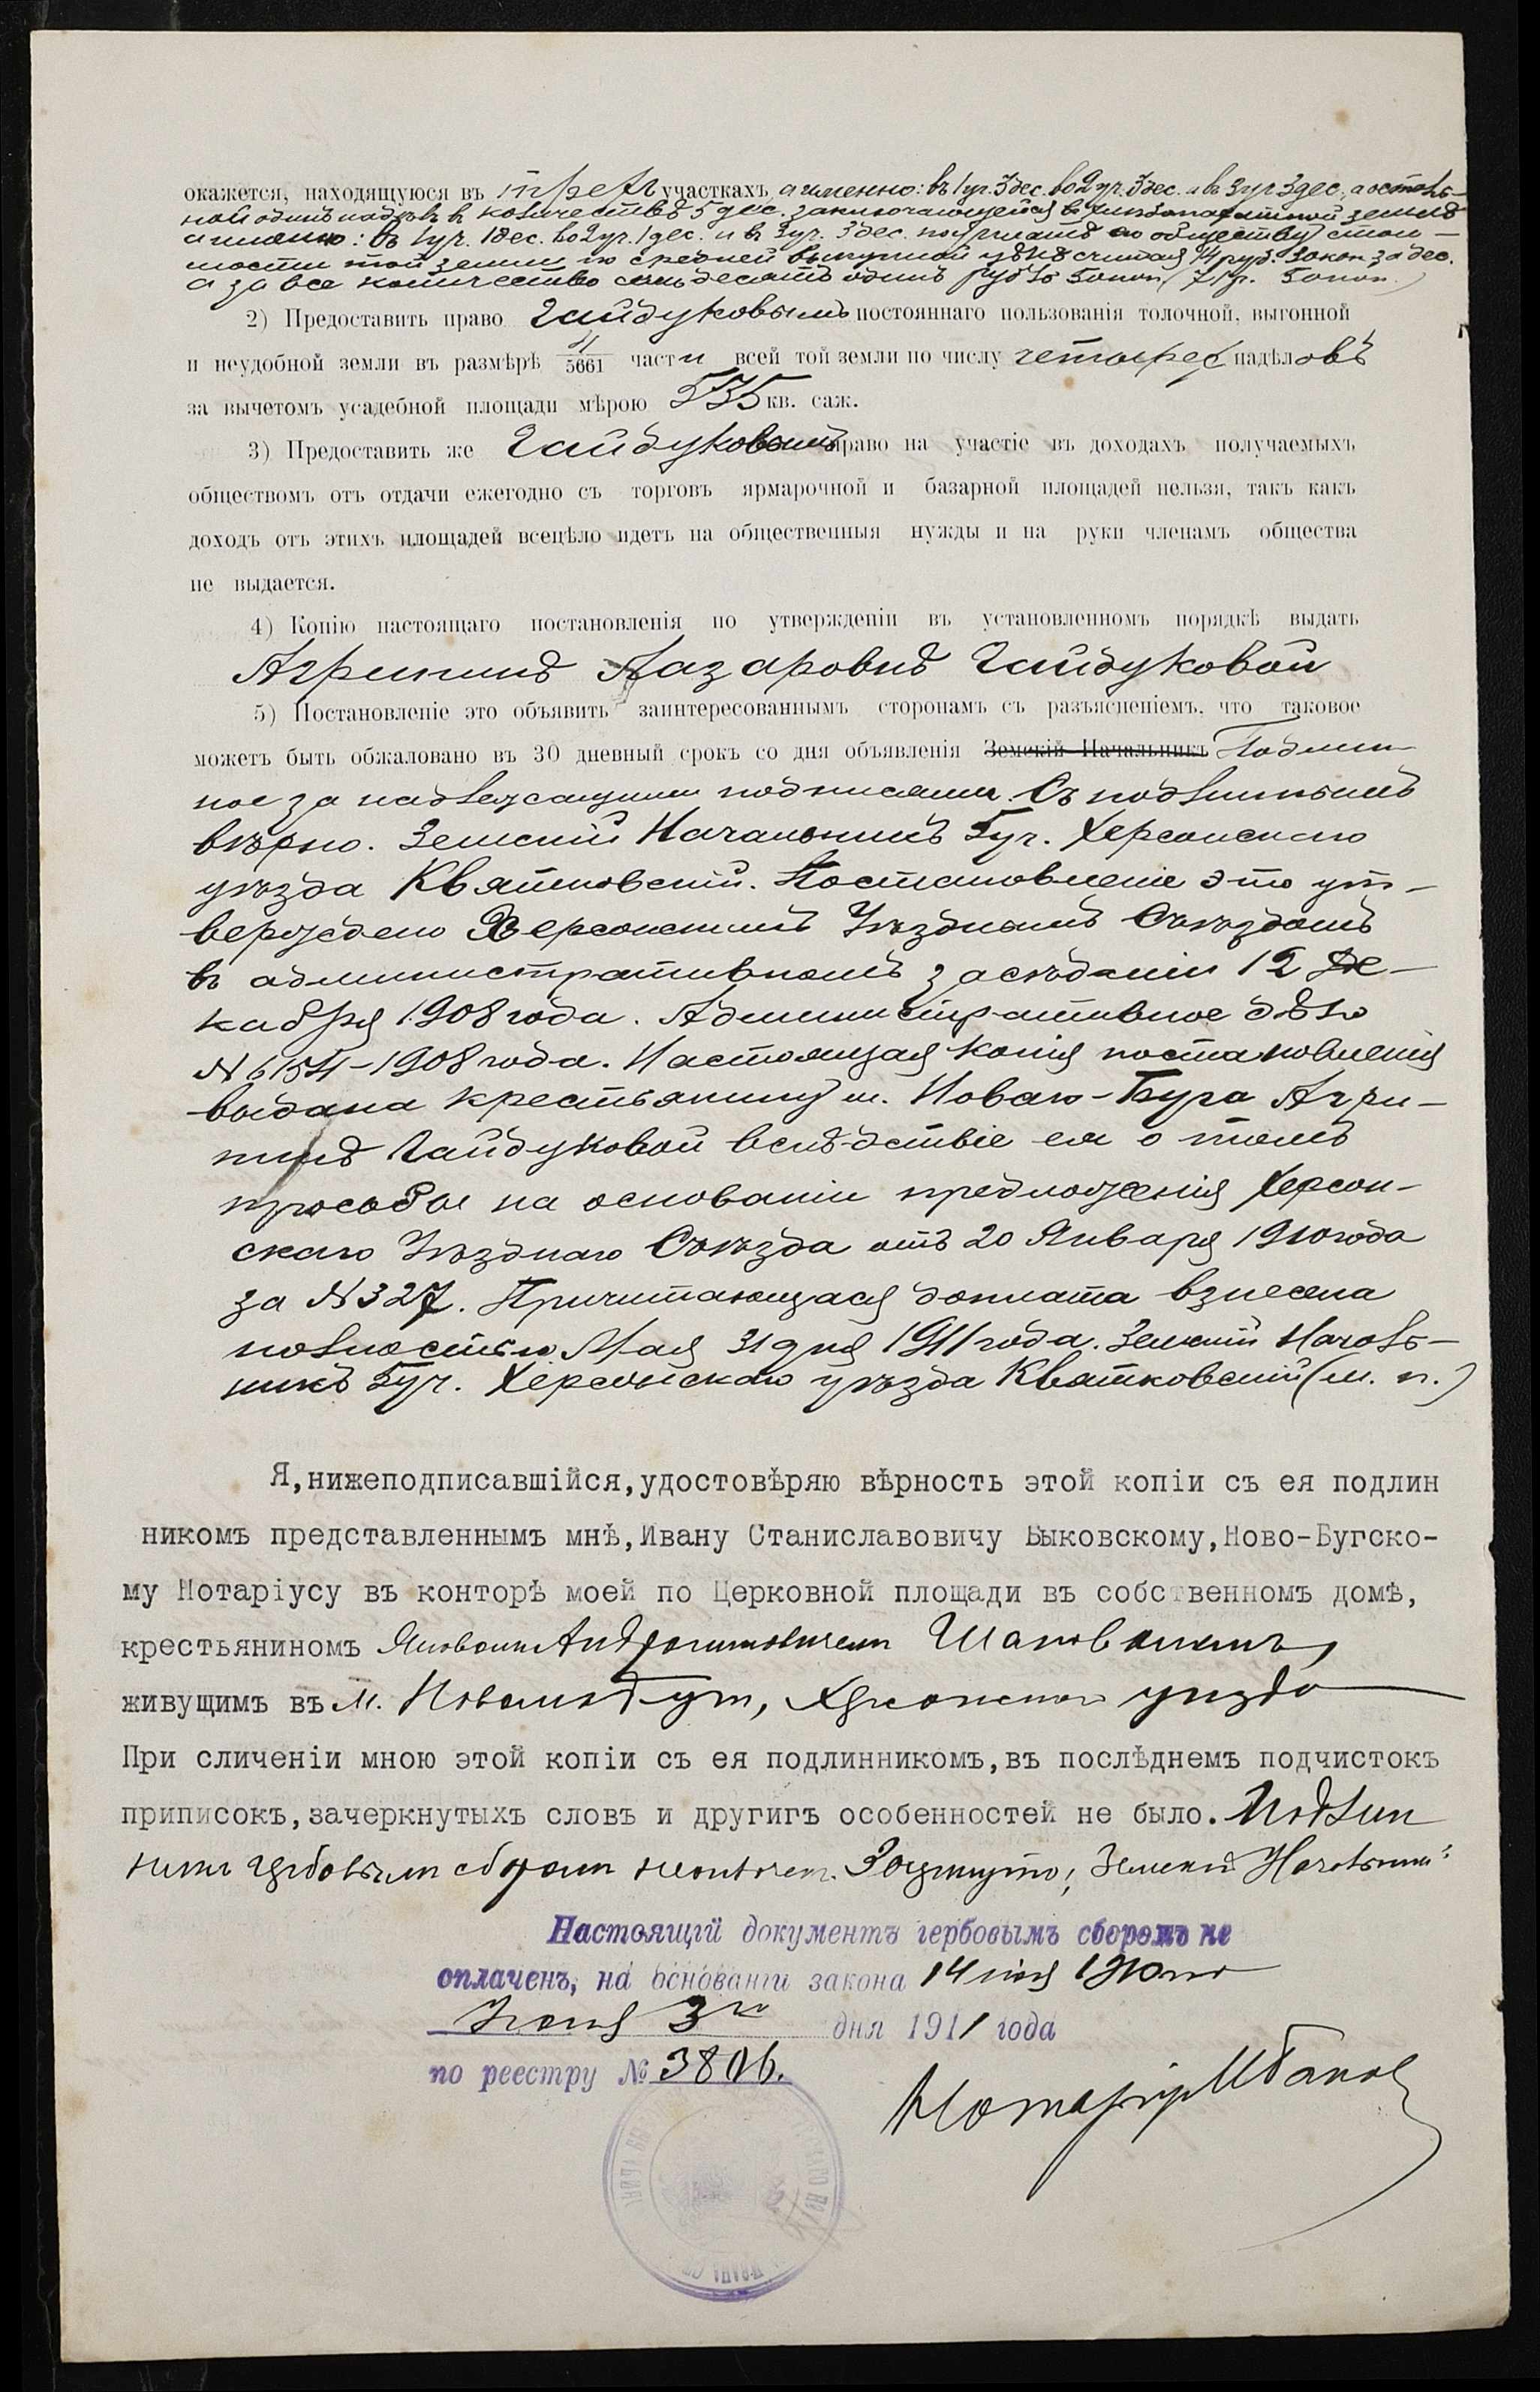 окажется, находящуюся въ трехъ участкахъ, а именно: въ 1 уч. 3 дес. во 2 уч. 3 дес. и въ 3 уч. 3 дес., а осталь-
ной одинъ надѣлъ въ количествѣ 5 дес. заключающейся въ земли
а именно: въ 1 уч. 1 дес. во 2 уч. 1 дес. и въ 3 уч. 3 дес. обществу стои-
мости той земли по средней выкупной цѣнѣ считая 14 руб. 30 коп. за дес.
а за все количество семьдесятъ одинъ рубль 50 коп. (71 р. 50 коп.)
2) Предоставить право Гайдуковымъ постояннаго пользованія толочной, выгонной
и неудобной земли въ размѣрѣ 4/5661 части всей той земли по числу четырехъ надѣловъ
за вычетомъ усадебной площади мѣрою 535 кв. саж.
3) Предоставить же Гайдуковымъ право на участіе въ доходахъ получаемыхъ
обществомъ отъ отдачи ежегодно съ торговъ ярмарочной и базарной площадей нельзя, такъ какъ
доходъ отъ этихъ площадей всецѣло идетъ на общественныя нужды и на руки членамъ общества
не выдается.
4) Копію настоящаго постановленія по утвержденіи въ установленномъ порядкѣ выдать
Агрипинѣ Лазаровнѣ Гайдуковой
5) Постановленіе это объявить заинтересованнымъ сторонамъ съ разъясненіемъ, что таковое
можетъ быть обжаловано въ 30 дневный срокъ со дня объявленія Земскій Начальникъ Подлин-
ное за надлежащими подписями. Съ подлиннымъ
вѣрно. Земскій Начальникъ 5 уч. Херсонскаго
уѣзда Квятковскій. Постановленіе это ут-
верждено Херсонскимъ Уѣзднымъ Съѣздомъ
въ административномъ засѣданіи 12 Де-
кабря 1908 года. Административное дѣло
№ 6154-1908 года. Настоящая копія постановленія
выдана крестьянину м. Новаго-Буга Агри-
пинѣ Гайдуковой вслѣдствіе ея о томъ
просьбы на основаніи предложенія Херсон-
скаго Уѣзднаго Съѣзда отъ 20 Января 1910 года
за № 327. Причитающаяся доплата взнесена
полностью Мая 31 дня 1911 года. Земскій Началь-
никъ 5 уч. Херсонскаго уѣзда Квятковскій (м. п.)
Я,нижеподписавшійся,удостовѣряю вѣрность этой копіи съ ея подлин
никомъ представленнымъ мнѣ,Ивану Станиславовичу Быковскому,Ново-Бугско-
му Нотаріусу въ конторѣ моей по Церковной площади въ собственномъ домѣ,
крестьяниномъ Яковомъ
живущимъ въ м. Новомъ Бугѣ, Херсонскаго уѣзда
При сличеніи мною этой копіи съ ея подлинникомъ,въ послѣднемъ подчистокъ
приписокъ,зачеркнутыхъ словъ и другигъ особенностей не было. Подлин
никъ гербовымъ сборомъ не оплаченъ. Зачеркнуто: Земскій Начальникъ
Настоящій документъ гербовымъ сборомъ не
оплаченъ, на основаніи закона 14 1910 го
Іюня 3го дня 1911 года
по реестру № 3806.
Нотаріусъ